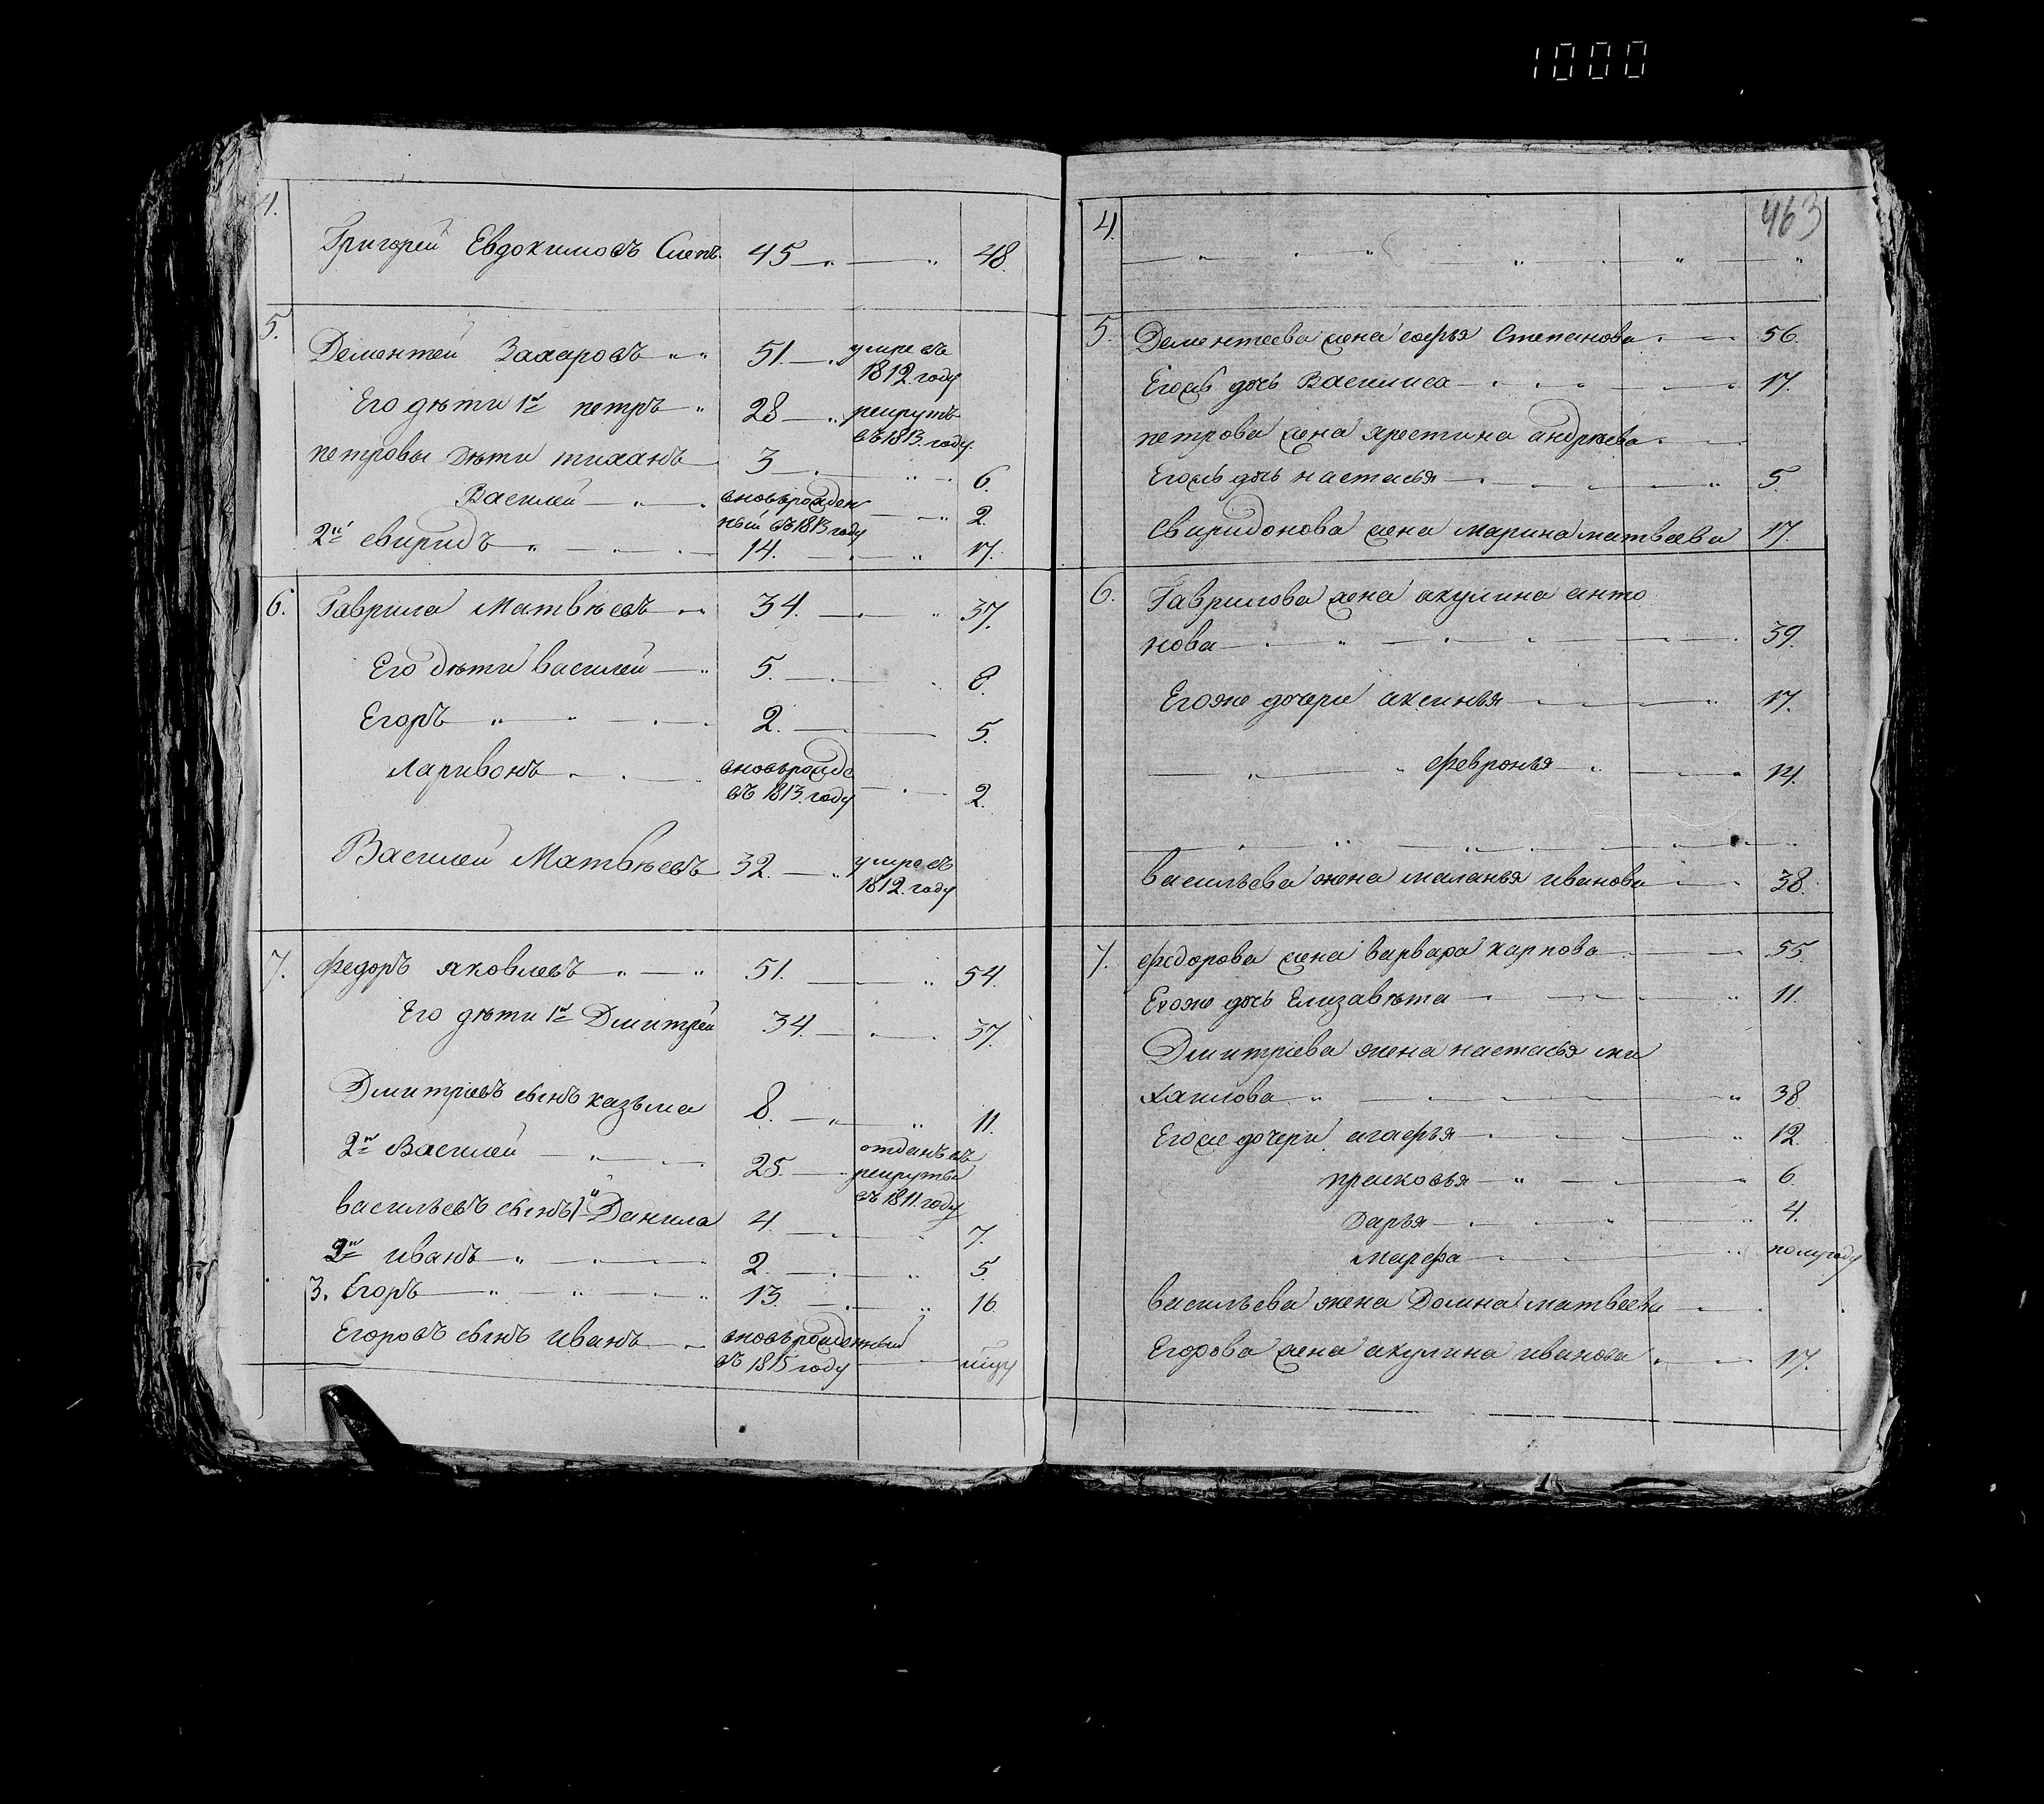 1000
4.
Григорей Евдокимовъ Слепъ. 45 48.
5.
Дементей Захаровъ 51. умре въ
1812. году
Его дѣти 1й петръ 28 рекрутъ
въ 1813. году.
петровы дѣти тиханъ 3 6.
Василей вновьрожден
ный въ 1813 году 2.
2й свиридъ 14. 17.
6. Гаврила Матвѣевъ 34. 37.
Его дѣти василей 5. 8.
Егоръ 2. 5.
Ларивонъ вновьрожде
въ 1813. году 2.
Василей Матвѣевъ 32. умре въ
1812. году
7. федоръ яковлевъ 51. 54.
Его дѣти 1й Дмитрей 34. 37.
Дмитріевъ сынъ казьма 8. 11.
2й Василей 25. отданъ въ
рекруты
въ 1811. году
васильевъ сынъ 1й Данила 4 7.
2й иванъ 2. 5.
3. Егоръ 13. 16
Егоровъ сынъ иванъ вновьрожденный
въ 1815 году
463
4.
5. Дементеева жена софья Степанова 56.
Егожъ дочь Василиса 17.
петрова жена хрестина андреева
Егожъ дочь настасья 5.
Свиридонова жена марина матвеева 17.
6. Гаврилова жена акулина анто
нова 39.
Егоже дочери аксинья 17.
февронья 14.
васильева жена маланья иванова 38.
7. федорова жена варвара карпова 55.
Егоже дочь Елизавѣта 11.
Дмитріева жена настасья ми
хаилова 38.
Егоже дочери агафья 12.
прасковья 6.
Дарья 4.
марфа полугоду
васильева жена Домна матвеева
Егорова жена акулина иванова 17.